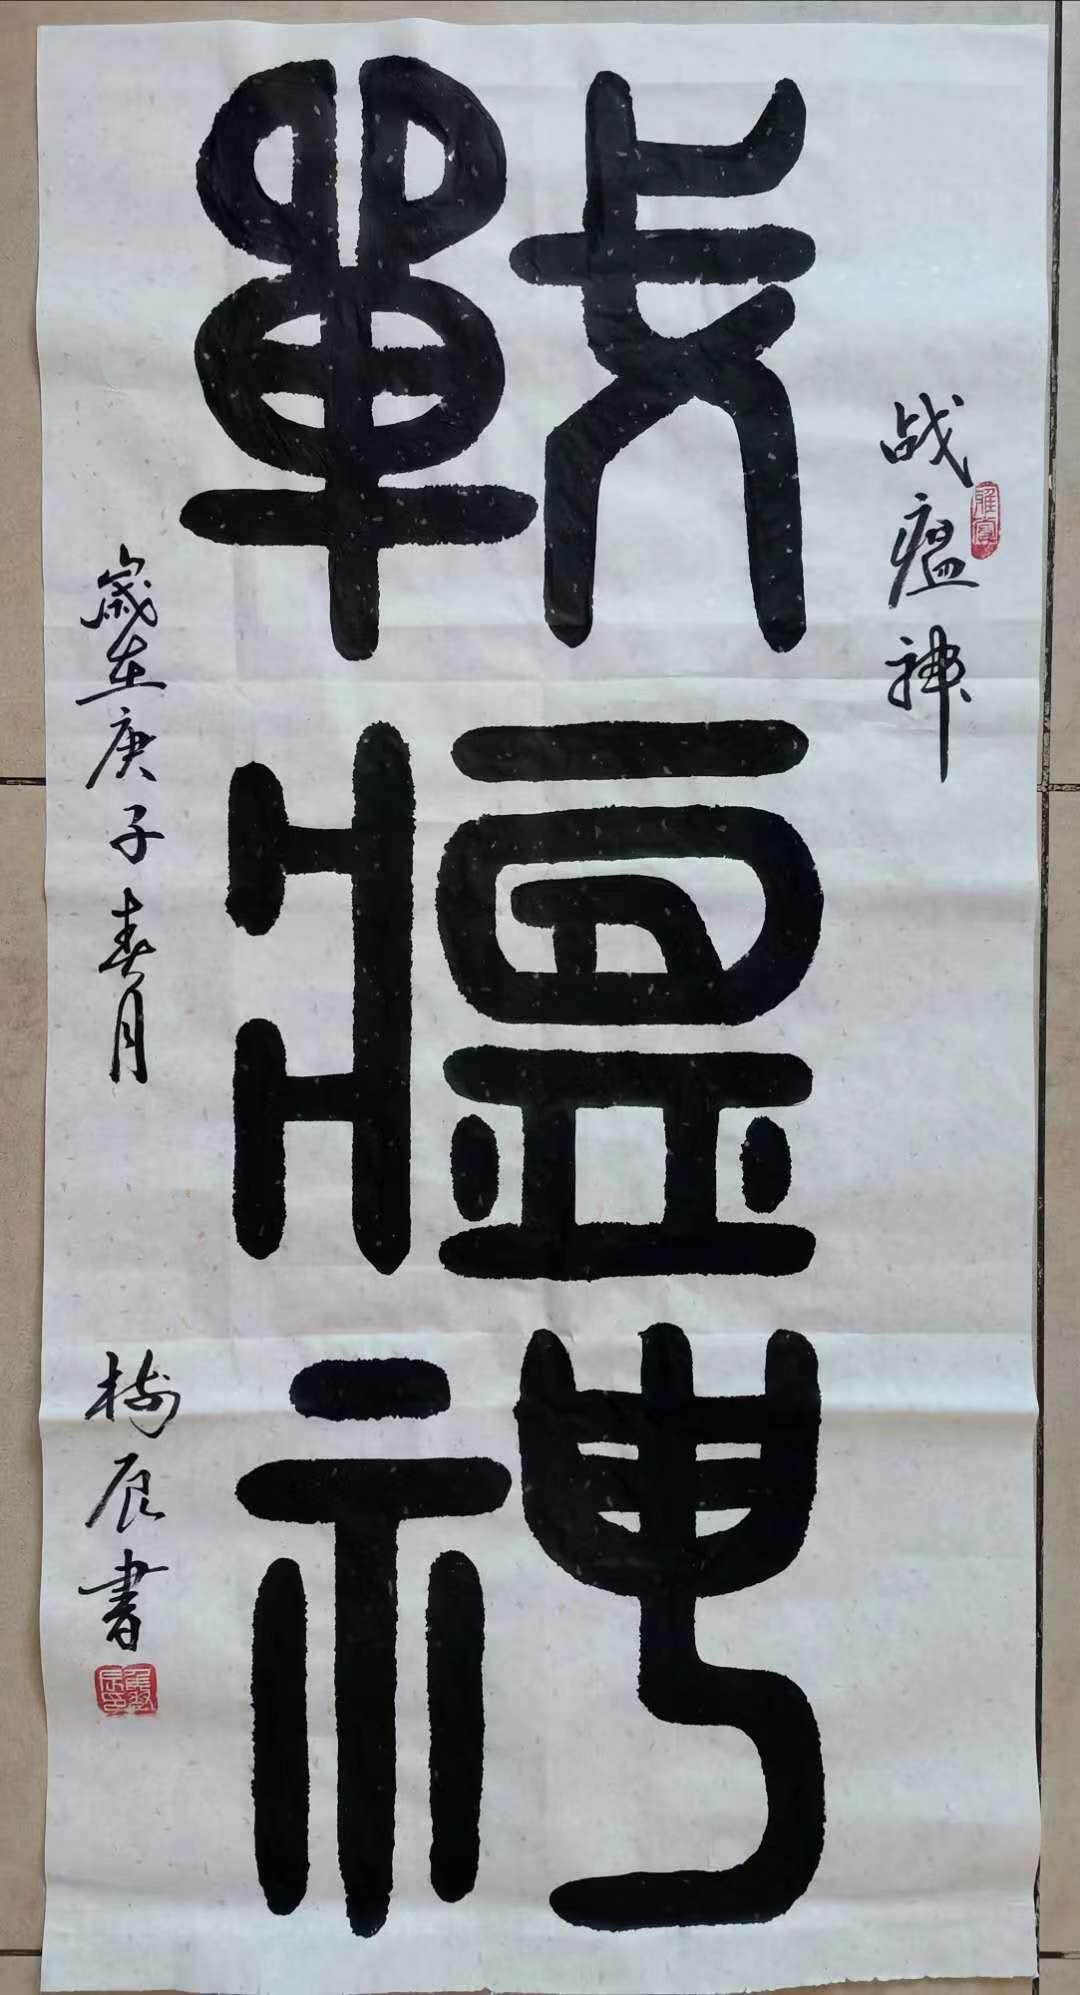 战瘟神
戰瘟神
歲在庚子春月
樹辰書